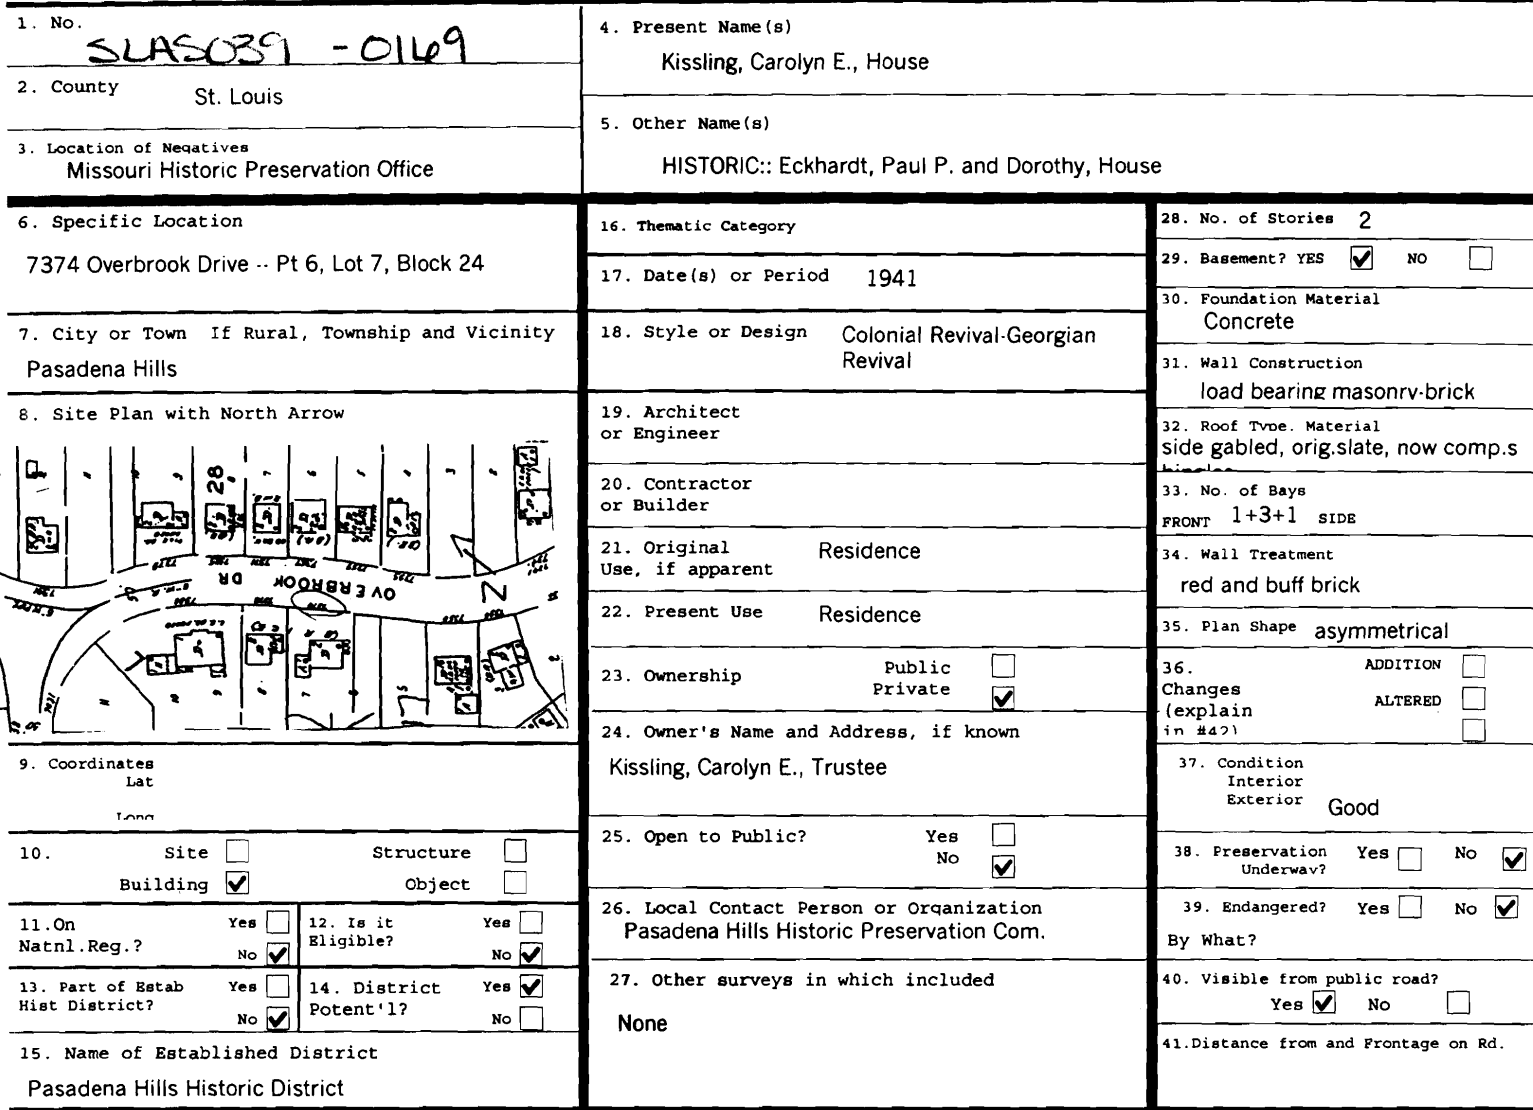 1. No.
SLAS039 -0169
2. County
St. Louis
3. Location of Negatives
Missouri Historic Preservation Office
4. Present Name(s)
Kissling, Carolyn E., House
5. Other Name(s)
HISTORIC:: Eckhardt, Paul P. and Dorothy, House
6. Specific Location
7374 Overbrook Drive -- Pt 6, Lot 7, Block 24
7. City or Town If Rural, Township and Vicinity
Pasadena Hills
8. Site Plan with North Arrow
28
OVERBROOK DR
9. Coordinates
Lat
Long
10. Site
Structure
Building ✔
Object
11.On
Natnl.Reg.?
Yes
No ✔
12. Is it
Eligible?
Yes
No ✔
13. Part of Estab
Hist District?
Yes
No ✔
14. District
Potent'l?
Yes ✔
No
15. Name of Established District
Pasadena Hills Historic District
16. Thematic Category
17. Date(s) or Period 1941
18. Style or Design Colonial Revival-Georgian
Revival
19. Architect
or Engineer
20. Contractor
or Builder
21. Original
Use, if apparent
Residence
22. Present Use Residence
23. Ownership
Public
Private ✔
24. Owner's Name and Address, if known
Kissling, Carolyn E., Trustee
25. Open to Public?
Yes
No ✔
26. Local Contact Person or Organization
Pasadena Hills Historic Preservation Com.
27. Other surveys in which included
None
28. No. of Stories 2
29. Basement? YES ✔ NO
30. Foundation Material
Concrete
31. Wall Construction
load bearing masonry-brick
32. Roof Type. Material
side gabled, orig.slate, now comp.s
hingles
33. No. of Bays
FRONT 1+3+1 SIDE
34. Wall Treatment
red and buff brick
35. Plan Shape asymmetrical
36.
Changes
(explain
in #42)
ADDITION
ALTERED
37. Condition
Interior
Exterior Good
38. Preservation
Underway?
Yes
No ✔
39. Endangered? Yes No ✔
By What?
40. Visible from public road?
Yes ✔ No
41.Distance from and Frontage on Rd.